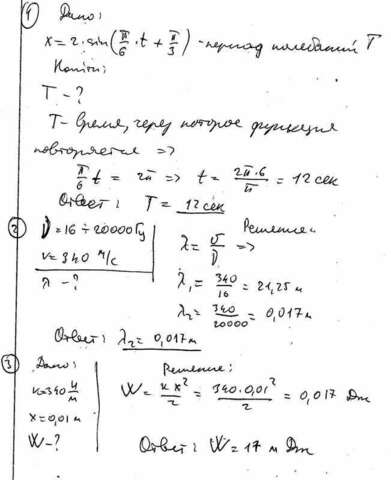 1 Дано:
x = 2·sin(π/6·t + π/3) - период колебаний T
Найти:
T - ?
T - время, через которое функция
повторяется =>
π/6 t = 2π => t = 2π·6/π = 12 сек
Ответ: T = 12 сек
2 ν = 16 ÷ 20000 Гц
v = 340 м/с
λ - ?
Решение:
λ = v/ν =>
λ₁ = 340/16 = 21,25 м
λ₂ = 340/20000 = 0,017 м
Ответ: λ₂ = 0,017 м
3 Дано:
k = 340 Н/м
x = 0,01 м
W - ?
Решение:
W = kx²/2 = 340·0,01²/2 = 0,017 Дж
Ответ: W = 17 м Дж